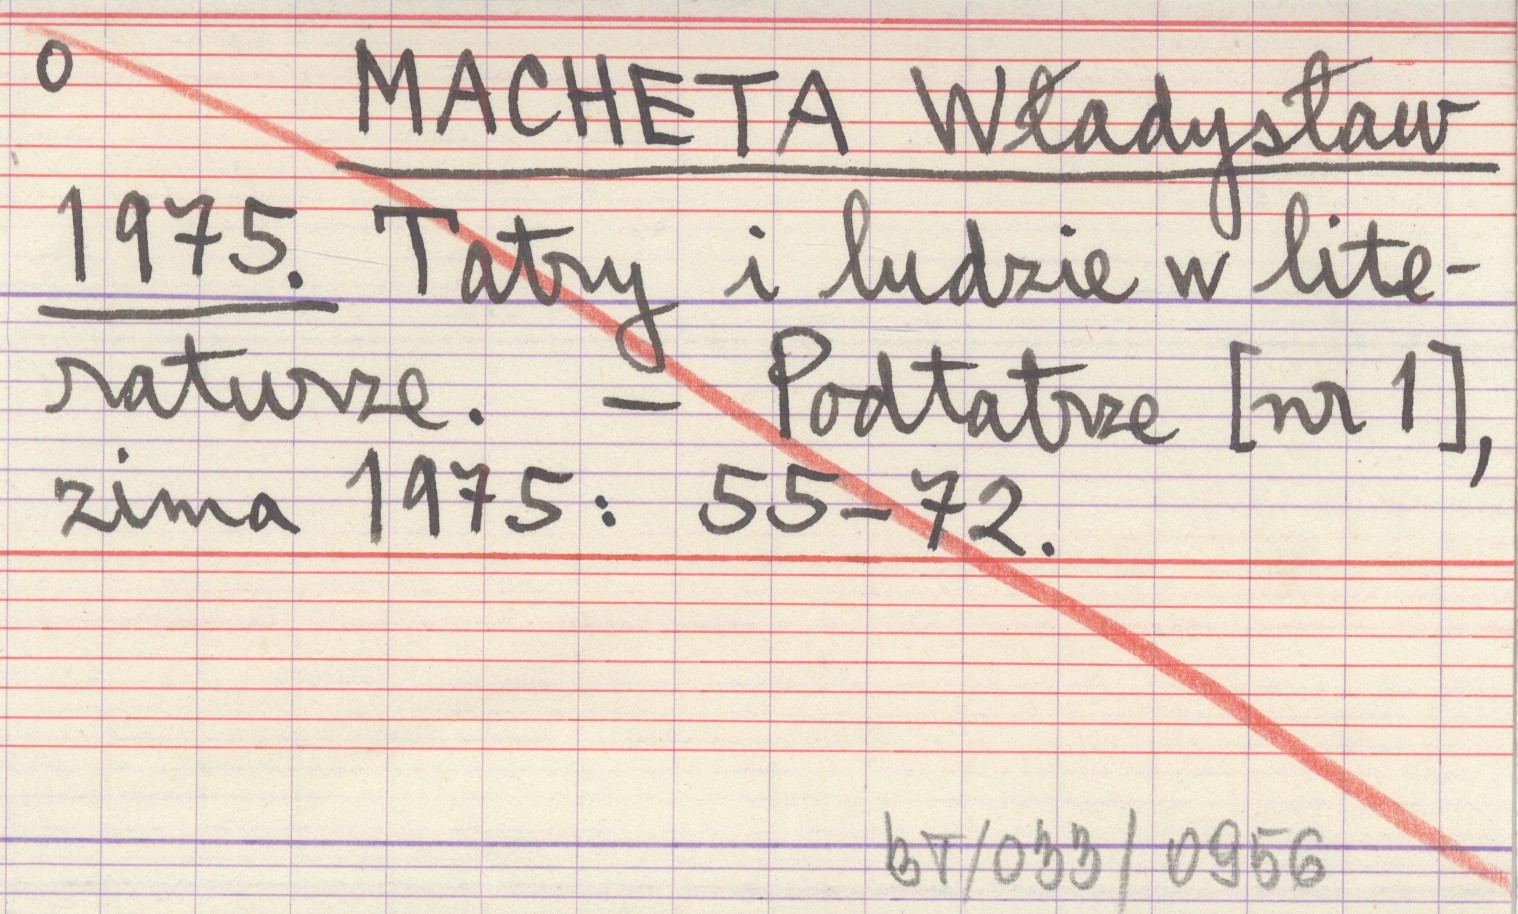 o MACHETA Władysław
1975. Tatry i ludzie w lite-
raturze. – Podtatrze [nr 1],
zima 1975: 55–72.
BT/033/0956